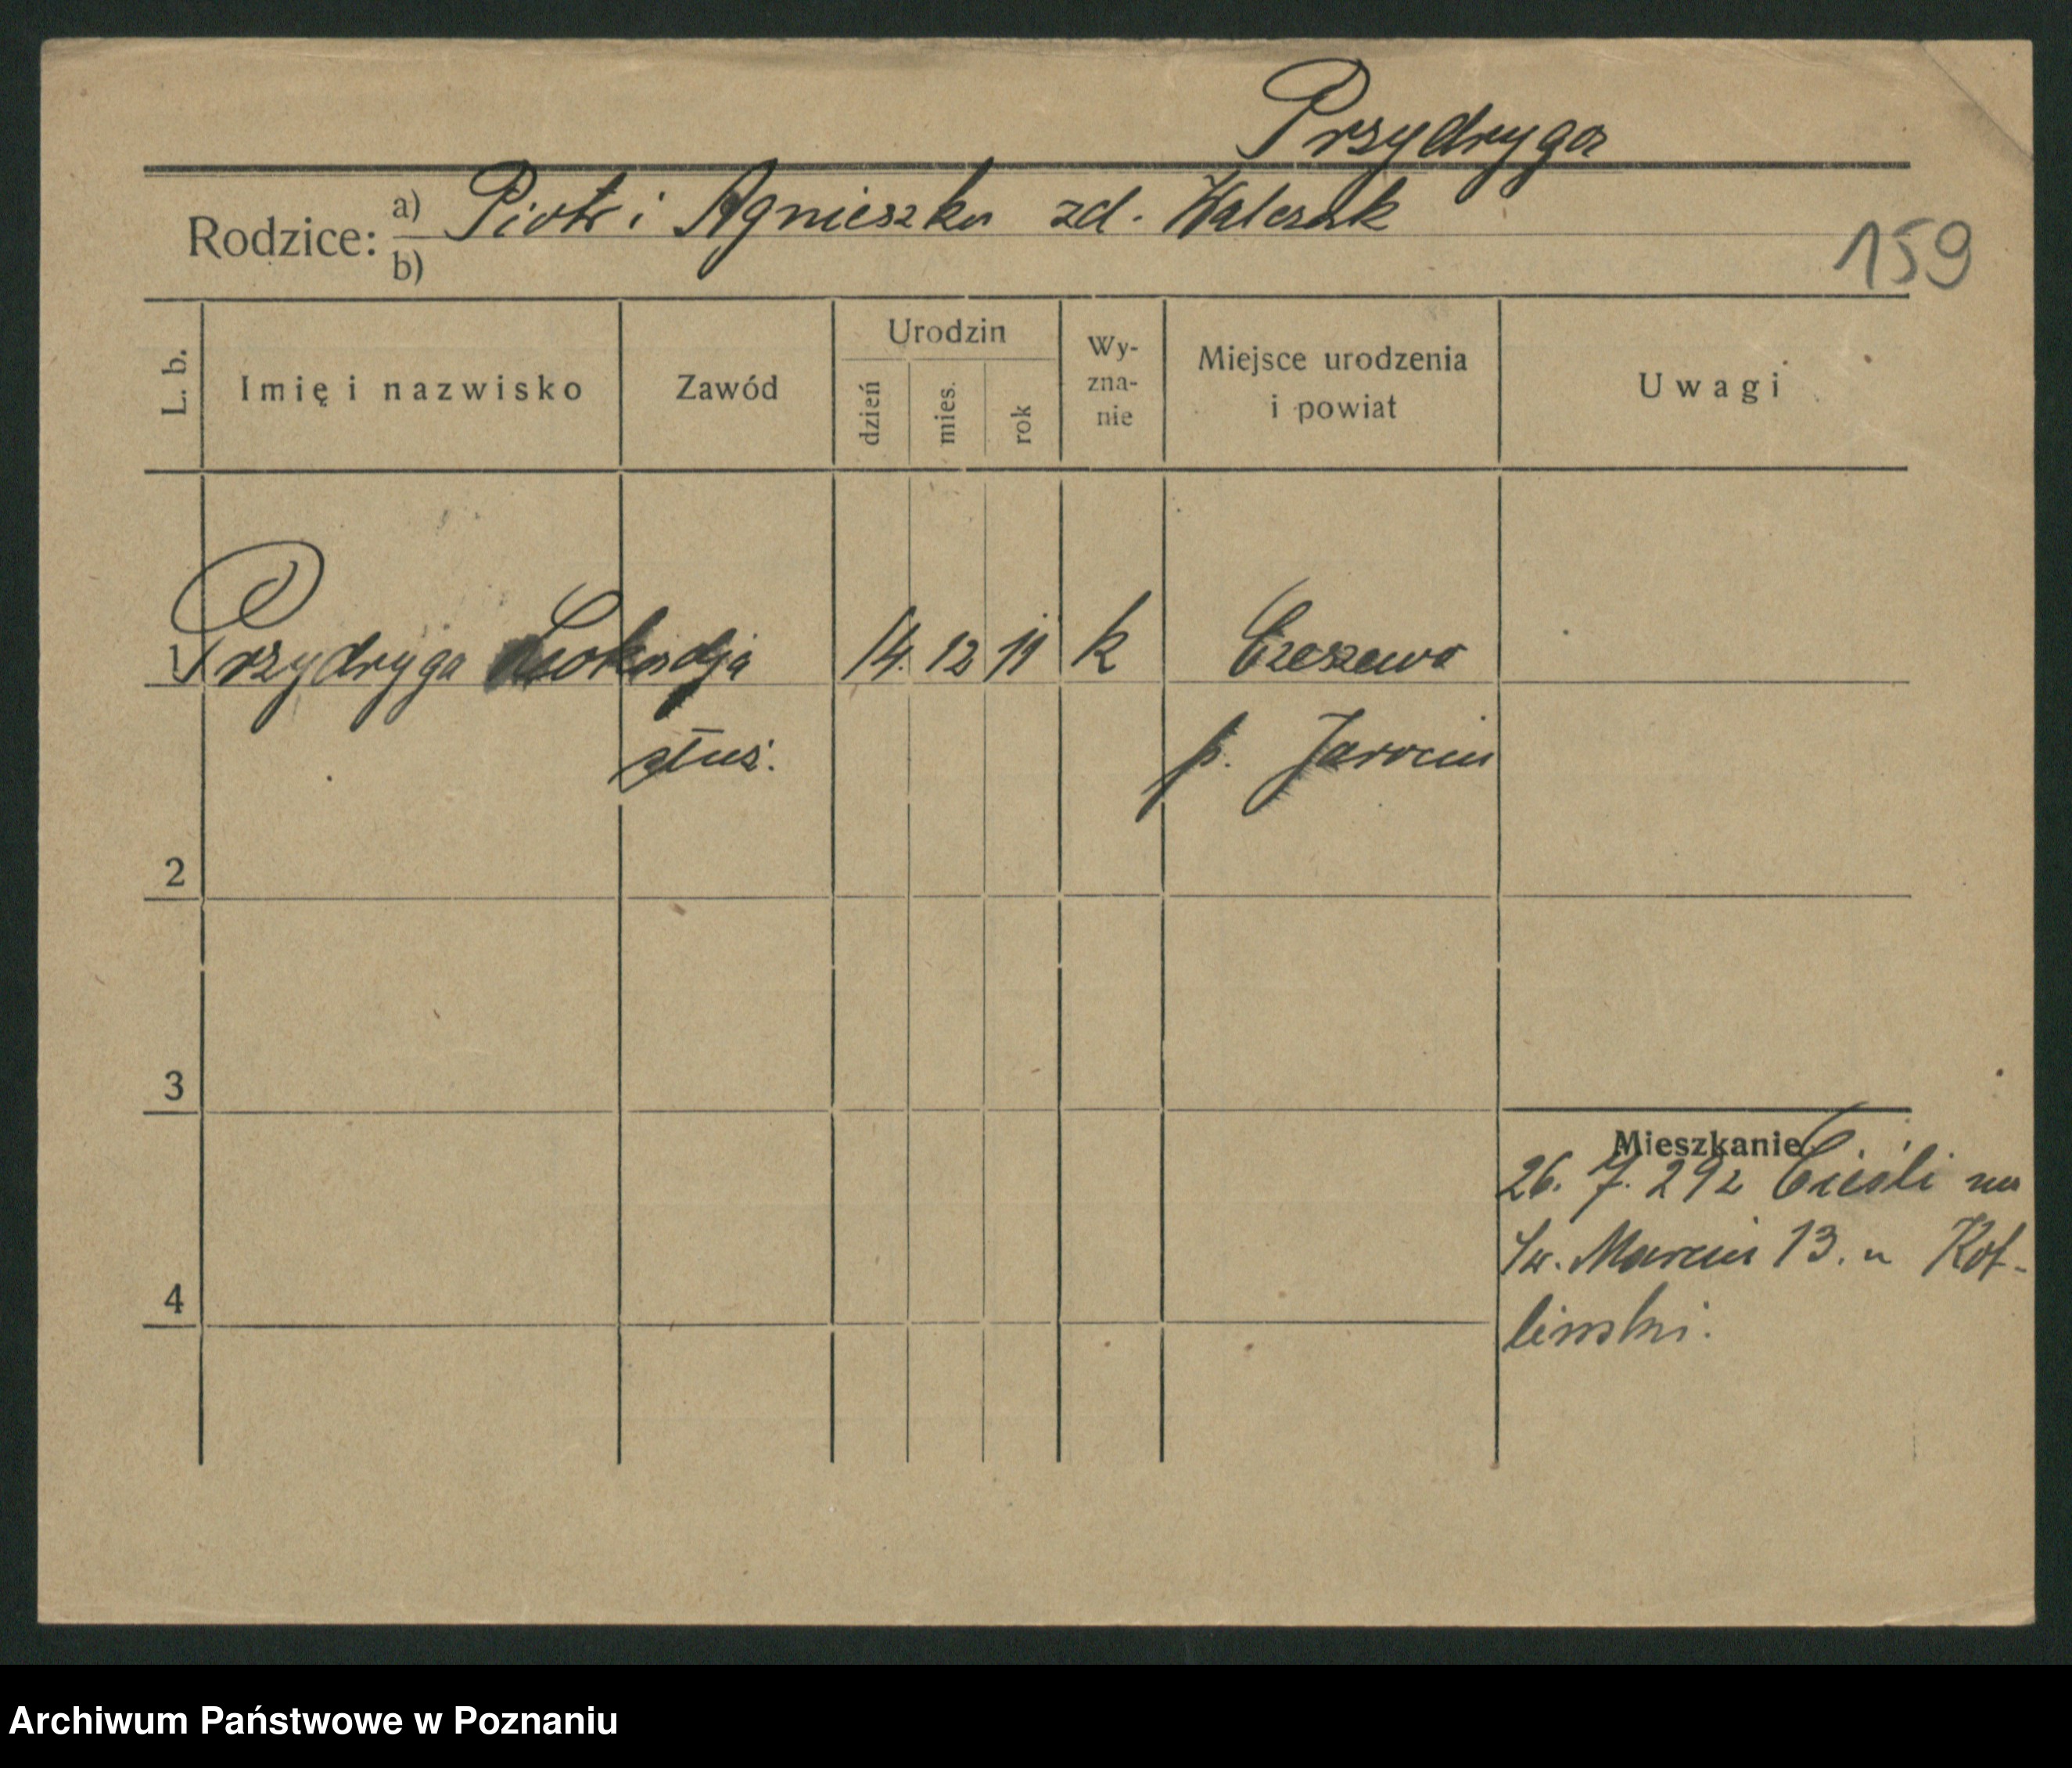 Przydryga
Rodzice: a) Piotr i Agnieszka zd. Walczak
b)
159
L. b.
Imię i nazwisko
Zawód
Urodzin
dzień
mies.
rok
Wy-
zna-
nie
Miejsce urodzenia
i powiat
Uwagi
1 Przydryga Leokadja 14. 12 11 k Czeszewo
służ. p. Jarocin
2
3
Mieszkanie
26. 7. 29 z Cieśli na
Św. Marcin 13. u Kot-
4
linski.
Archiwum Państwowe w Poznaniu